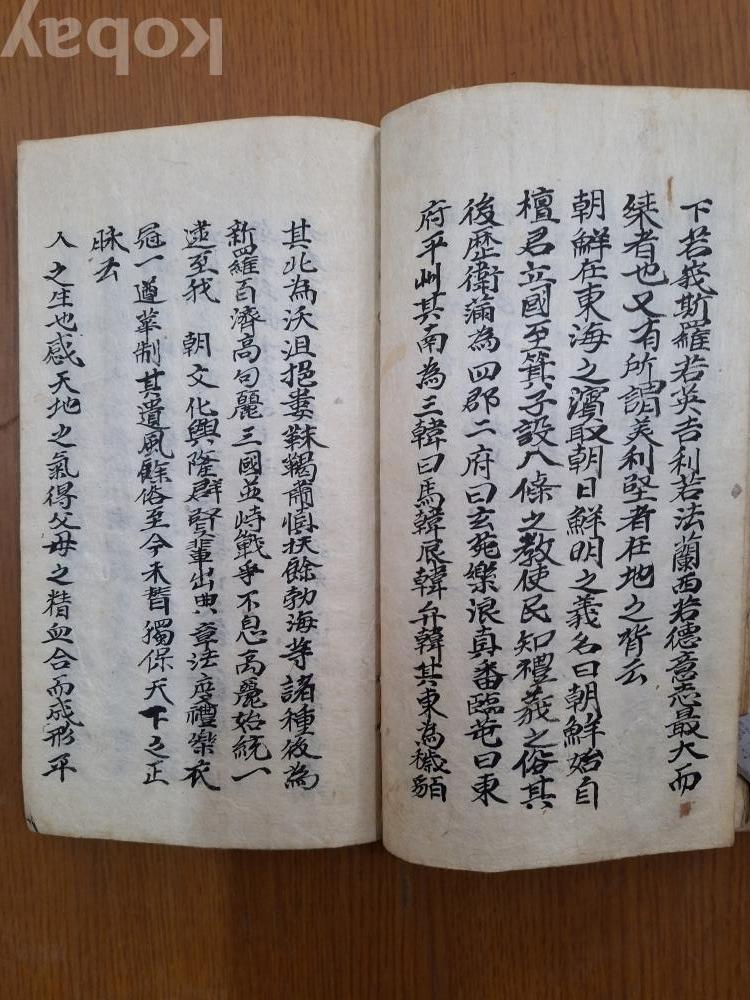 下若莪斯羅若英吉利若法蘭西若德意志最大而
續者也又有所謂美利堅者在地之背云
朝鮮在東海之濱取朝日鮮明之義名曰朝鮮始自
檀君立國至箕子設八條之教使民知禮義之俗其
後歷衛滿為四郡二府曰玄菟樂浪真番臨芚曰東
府平州其南為三韓曰馬韓辰韓弁韓其東為穢貊
其北為沃沮挹婁靺鞨肅慎扶餘勃海等諸種後為
新羅百濟高句麗三國並峙戰爭不息高麗始統一
逮至我 朝文化興隆群賢輩出典章法度禮樂衣
冠一遵華制其遺風餘俗至今未替獨保天下之正
脉云
人之生也感天地之氣得父母之精血合而成形平
kobay